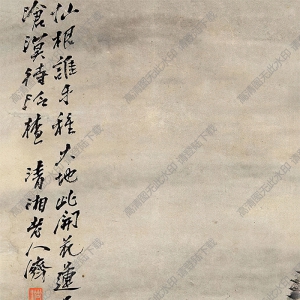 仙根誰手種大地此開花蓮
滄溟待泛槎 清湘老人濟